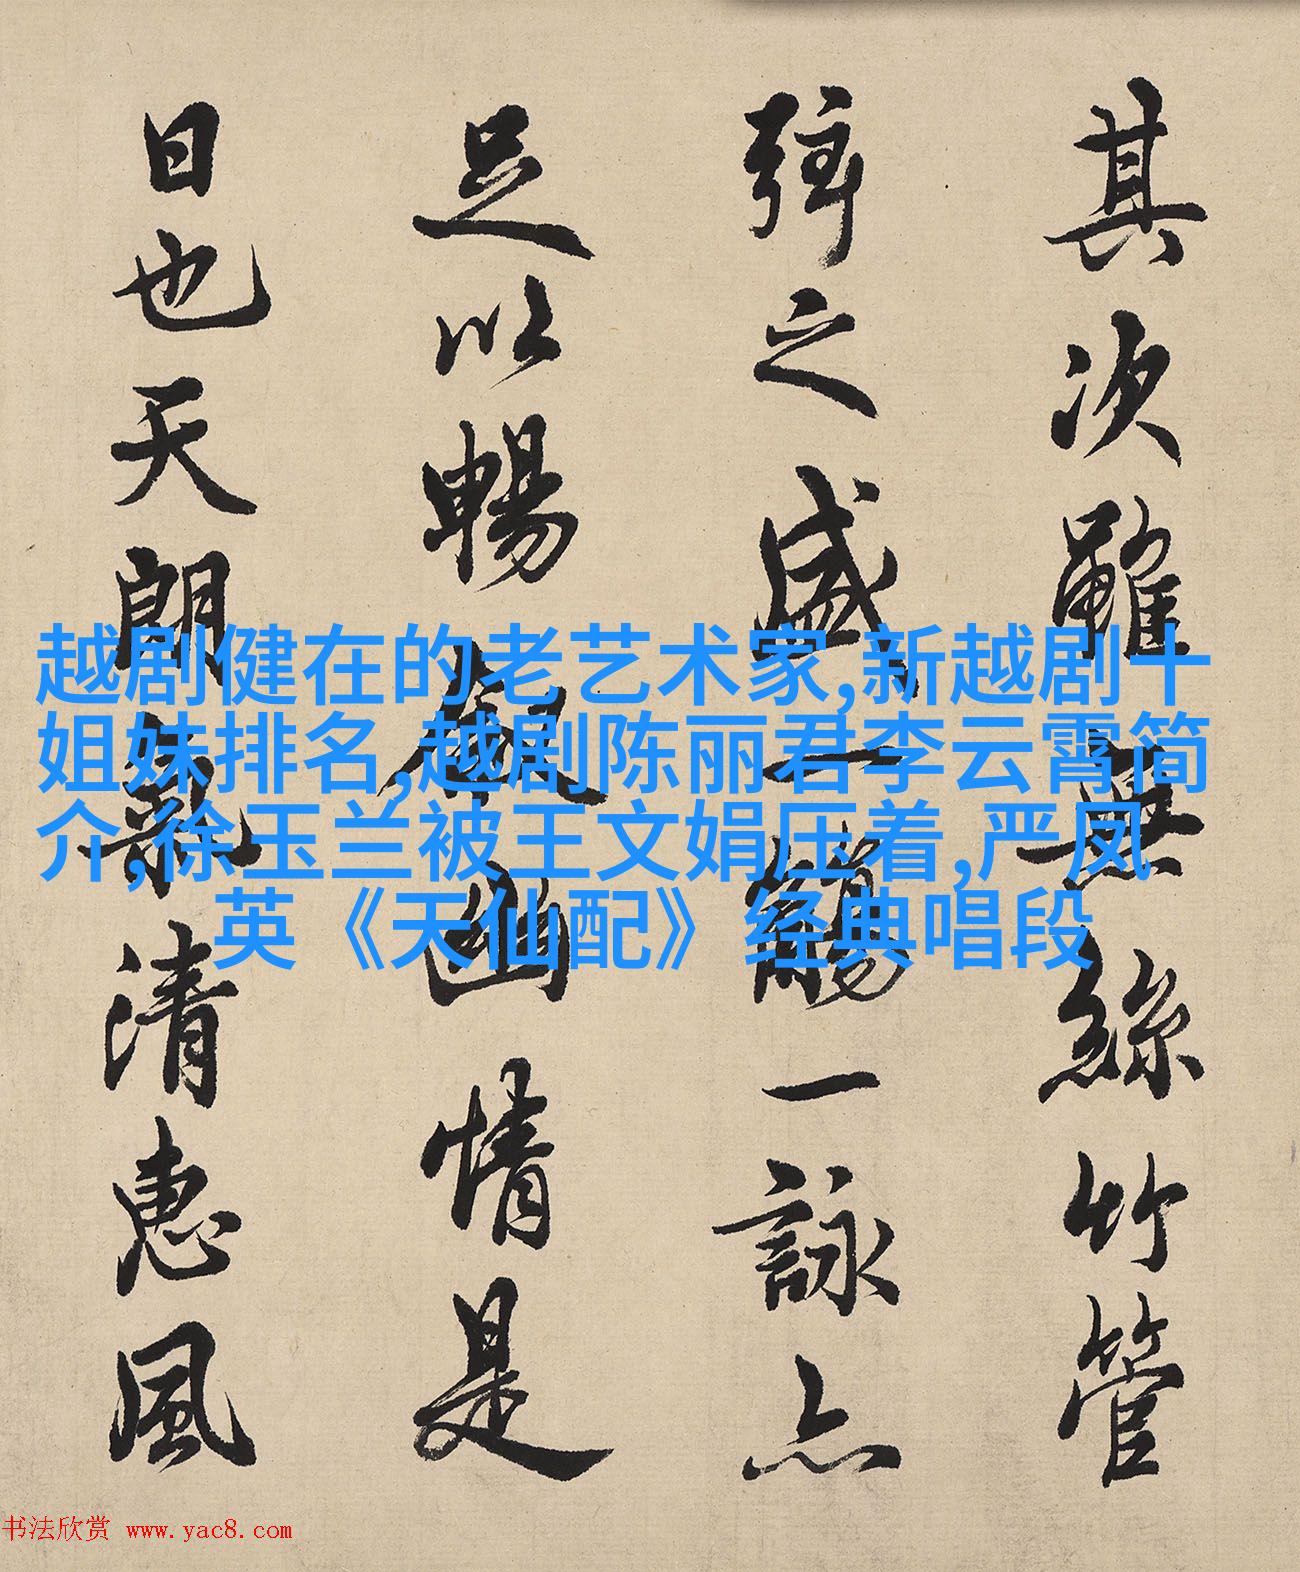 其次雖無絲竹管
弦之盛一觴一詠亦
足以暢敘幽情是
日也天朗氣清惠風
越剧健在的老艺术家,新越剧十
姐妹排名,越剧陈丽君李云霄简
介,徐玉兰被王文娟压着,严凤
英《天仙配》经典唱段
书法欣赏 www.yac8.com